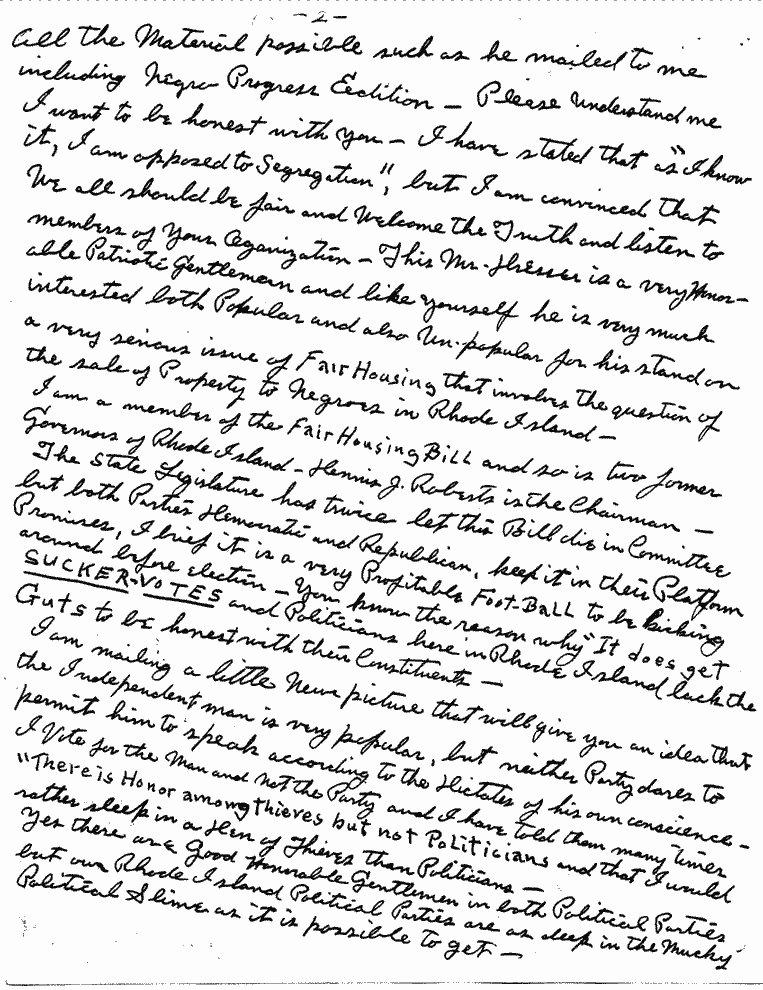 -2-
all the Material possible such as he mailed to me
including Negro Progress Eedition - Please understand me
I want to be honest with you - I have stated that as "I know
it, I am opposed to Segregation", but I am convinced that
We all should be fair and Welcome the Truth and listen to
members of Your Oganization - This Mr. is a very Honor-
able Patriotic Gentleman and like yourself he is very much
interested both Popular and also Un-popular for his stand on
a very serious issue of Fair Housing that involves the question of
the sale of Property to Negroes in Rhode Island -
I am a member of the Fair Housing Bill and so is two former
Governors of Rhode Island - Dennis J. Roberts is the Chairman -
The State Legislature has twice let this Bill die in Committee
but both Parties Democratic and Republican, keep it in their Platform
Promises, I brief it is a very Profitable Foot-Ball to be kicking
around before election - You know the reason why "It does get
SUCKER-VOTES and Politicians here in Rhode Island lack the
Guts to be honest with their Constituents -
I am mailing a little News picture that will give you an idea that
the Independent man is very popular, but neither Party dares to
permit him to speak according to the Dictates of his own conscience -
I Vote for the Man and not the Party and I have told them many times
"There is Honor among thieves but not Politicians and that I would
rather sleep in a Den of Thieves than Politicians -
Yes there are Good Honorable Gentlemen in both Political Parties
but our Rhode Island Political Parties are as deep in the Mucky
Political Slime as it is possible to get -